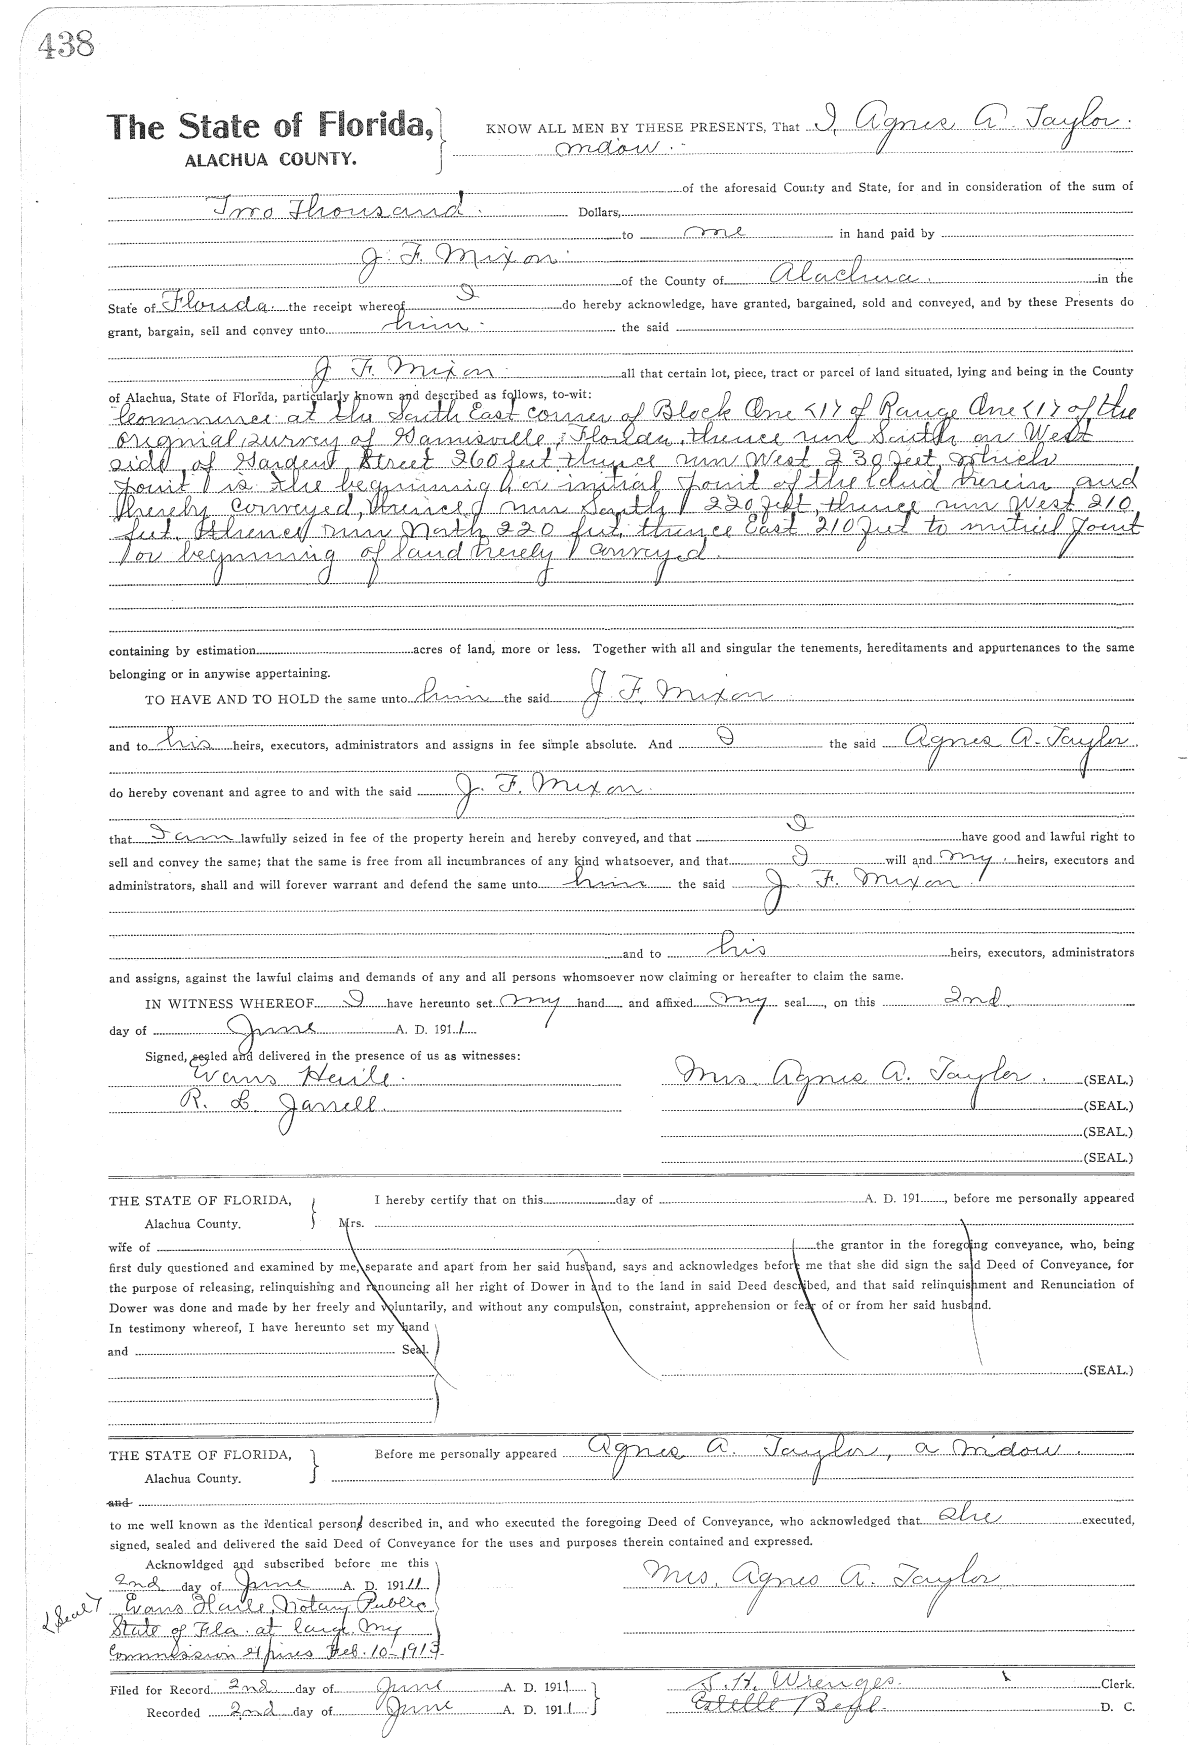 438
The State of Florida, KNOW ALL MEN BY THESE PRESENTS, That I, Agnes A. Taylor.
ALACHUA COUNTY. widow.
of the aforesaid County and State, for and in consideration of the sum of
Two Thousand. Dollars,
to me in hand paid by
J. F. Mixon.
of the County of Alachua. in the
State of Florida. the receipt whereof I do hereby acknowledge, have granted, bargained, sold and conveyed, and by these Presents do
grant, bargain, sell and convey unto him. the said
J. F. Mixon all that certain lot, piece, tract or parcel of land situated, lying and being in the County
of Alachua, State of Florida, particularly known and described as follows, to-wit:
Commence at the South East corner of Block One <1> of Range One <1> of the
original survey of Gainesville, Florida, thence run South on West
side of Garden Street 260 feet thence run West 230 feet, which
point is the beginning or initial point of the land herein and
hereby conveyed, thence run South 220 feet, thence run West 210
feet, thence run North 220 feet, thence East 210 feet to initial point
or beginning of land hereby conveyed.
containing by estimation acres of land, more or less. Together with all and singular the tenements, hereditaments and appurtenances to the same
belonging or in anywise appertaining.
TO HAVE AND TO HOLD the same unto him the said J. F. Mixon
and to his heirs, executors, administrators and assigns in fee simple absolute. And I the said Agnes A. Taylor.
do hereby covenant and agree to and with the said J. F. Mixon.
that I am lawfully seized in fee of the property herein and hereby conveyed, and that I have good and lawful right to
sell and convey the same; that the same is free from all incumbrances of any kind whatsoever, and that I will and my heirs, executors and
administrators, shall and will forever warrant and defend the same unto him the said J. F. Mixon.
and to his heirs, executors, administrators
and assigns, against the lawful claims and demands of any and all persons whomsoever now claiming or hereafter to claim the same.
IN WITNESS WHEREOF I have hereunto set my hand and affixed my seal, on this 2nd
day of June A. D. 1911.
Signed, sealed and delivered in the presence of us as witnesses:
Evans Haile. Mrs. Agnes A. Taylor. (SEAL.)
R. L. Jarrell. (SEAL.)
(SEAL.)
(SEAL.)
THE STATE OF FLORIDA, I hereby certify that on this day of A. D. 191 , before me personally appeared
Alachua County. Mrs.
wife of the grantor in the foregoing conveyance, who, being
first duly questioned and examined by me, separate and apart from her said husband, says and acknowledges before me that she did sign the said Deed of Conveyance, for
the purpose of releasing, relinquishing and renouncing all her right of Dower in and to the land in said Deed described, and that said relinquishment and Renunciation of
Dower was done and made by her freely and voluntarily, and without any compulsion, constraint, apprehension or fear of or from her said husband.
In testimony whereof, I have hereunto set my hand
and Seal.
(SEAL.)
THE STATE OF FLORIDA, Before me personally appeared Agnes A. Taylor, a widow.
Alachua County.
and
to me well known as the identical person described in, and who executed the foregoing Deed of Conveyance, who acknowledged that she executed,
signed, sealed and delivered the said Deed of Conveyance for the uses and purposes therein contained and expressed.
Acknowldged and subscribed before me this
2nd day of June A. D. 1911 Mrs. Agnes A. Taylor
<Seal> Evans Haile, Notary Public
State of Fla. at large. My
Commission expires Feb. 10-1913.
Filed for Record 2nd day of June A. D. 1911 S. H. Wienges. Clerk.
Recorded 2nd day of June A. D. 1911. Estelle D. C.